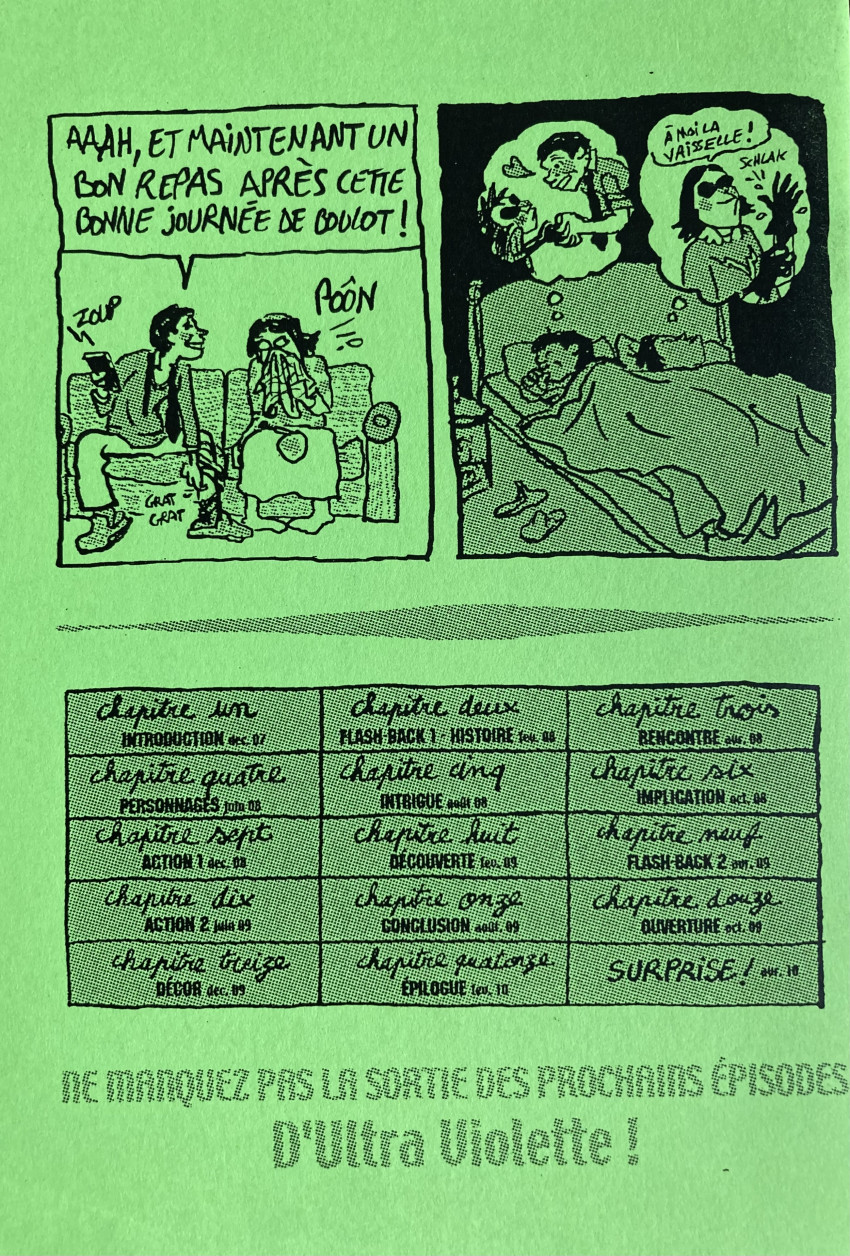 AAAH, ET MAINTENANT UN
BON REPAS APRÈS CETTE
BONNE JOURNÉE DE BOULOT !
ZOUP
POÔN
GRAT
GRAT
À MOI LA
VAISSELLE !
SCHLAK
chapitre un
INTRODUCTION dec. 07
chapitre deux
FLASH-BACK 1 - HISTOIRE fev. 08
chapitre trois
RENCONTRE avr. 08
chapitre quatre
PERSONNAGES juin 08
chapitre cinq
INTRIGUE août 08
chapitre six
IMPLICATION oct. 08
chapitre sept
ACTION 1 dec. 08
chapitre huit
DÉCOUVERTE fev. 09
chapitre neuf
FLASH-BACK 2 avr. 09
chapitre dix
ACTION 2 juin 09
chapitre onze
CONCLUSION août. 09
chapitre douze
OUVERTURE oct. 09
chapitre treize
DÉCOR dec. 09
chapitre quatorze
ÉPILOGUE fev. 10
SURPRISE ! avr. 10
NE MANQUEZ PAS LA SORTIE DES PROCHAINS ÉPISODES
D'Ultra Violette !